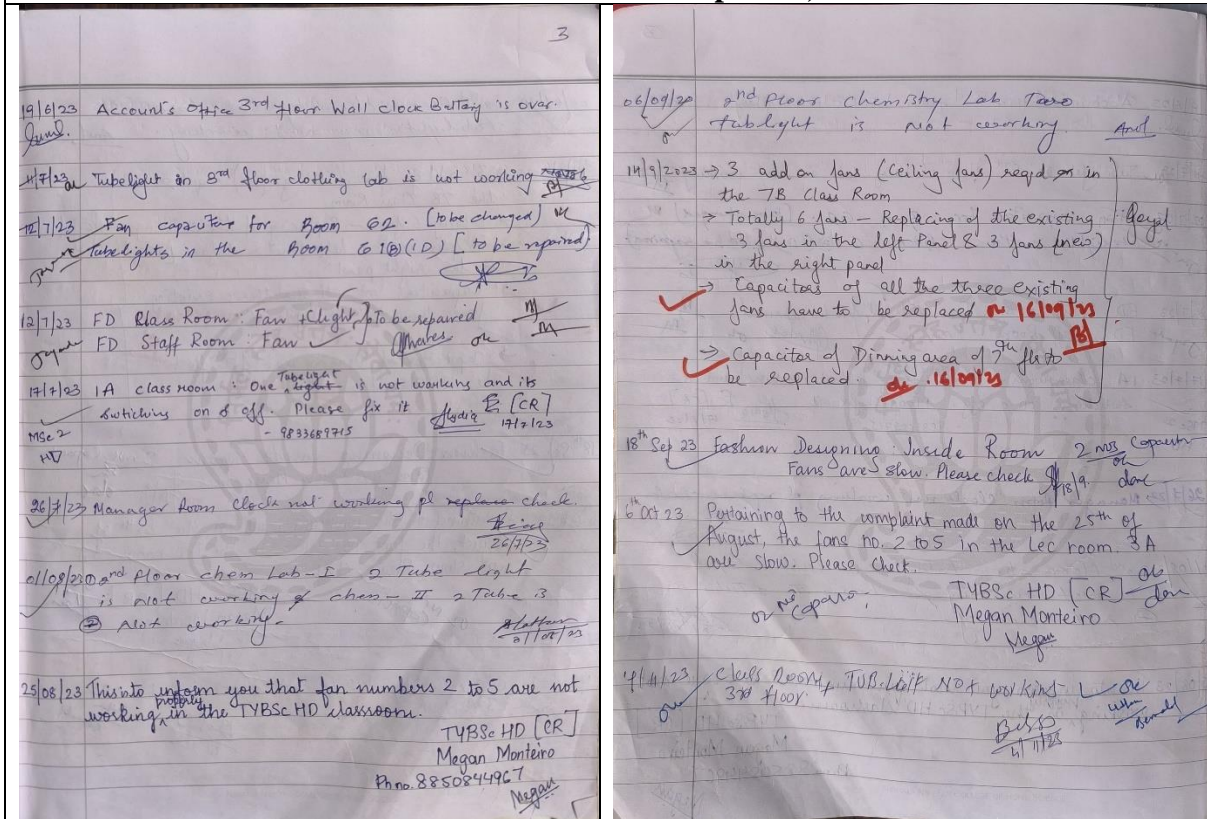 3
19/6/23 Account's Office 3rd floor Wall clock Battery is over.
4/7/23 Tubelight in 3rd floor clothing lab is not working
12/7/23 Fan capacitor for Room 62. [to be changed]
Tubelights in the Room 61(B)(1D) [to be repaired]
12/7/23 FD Class Room : Fan + Light To be repaired
FD Staff Room : Fan
17/7/23 1A class room : One Tubelight is not working and its
switching on & off. Please fix it [CR]
- 9833689715 17/7/23
MSc 2
HD
26/7/23 Manager Room Clock not working pl replace check.
26/7/23
01/08/20 2nd floor chem Lab-I 2 Tube light
is not working & chem-II 2 Tube is
not working.
25/08/23 This is to inform you that fan numbers 2 to 5 are not
working properly in the TYBSc HD classroom.
TYBSc HD [CR]
Megan Monteiro
Ph no. 8850844967
Megan
06/09/20 2nd floor chemistry Lab Two
tublight is not working.
14/9/2023 → 3 add on fans (Ceiling fans) reqd in
the 7B Class Room
→ Totally 6 fans - Replacing of the existing
3 fans in the left Panel & 3 fans (new)
in the right panel
→ Capacitors of all the three existing
fans have to be replaced 16/09/23
→ Capacitor of Dinning area of 7th flr to
be replaced. 16/09/23
18th Sep 23 Fashion Designing Inside Room 2 nos
Fans are slow. Please check 18/9. done
6th Oct 23 Pertaining to the complaint made on the 25th of
August, the fans no. 2 to 5 in the lec room 3A
are slow. Please check.
TYBSc HD [CR]
Megan Monteiro
Megan
4/11/23 Class Room, TUB-Light NOT working
3rd floor
4/11/23